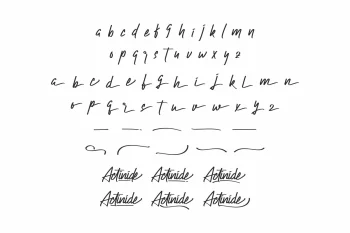 a b c d e f g h i j k l m n
o p q r s t u v w x y z
a b c d e f g h i j k l m n
o p q r s t u v w x y z
Actinide Actinide Actinide
Actinide Actinide Actinide